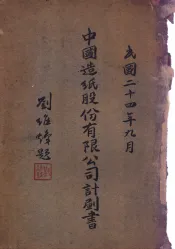 民國二十四年九月
中國造紙股份有限公司計劃書
劉維熾題